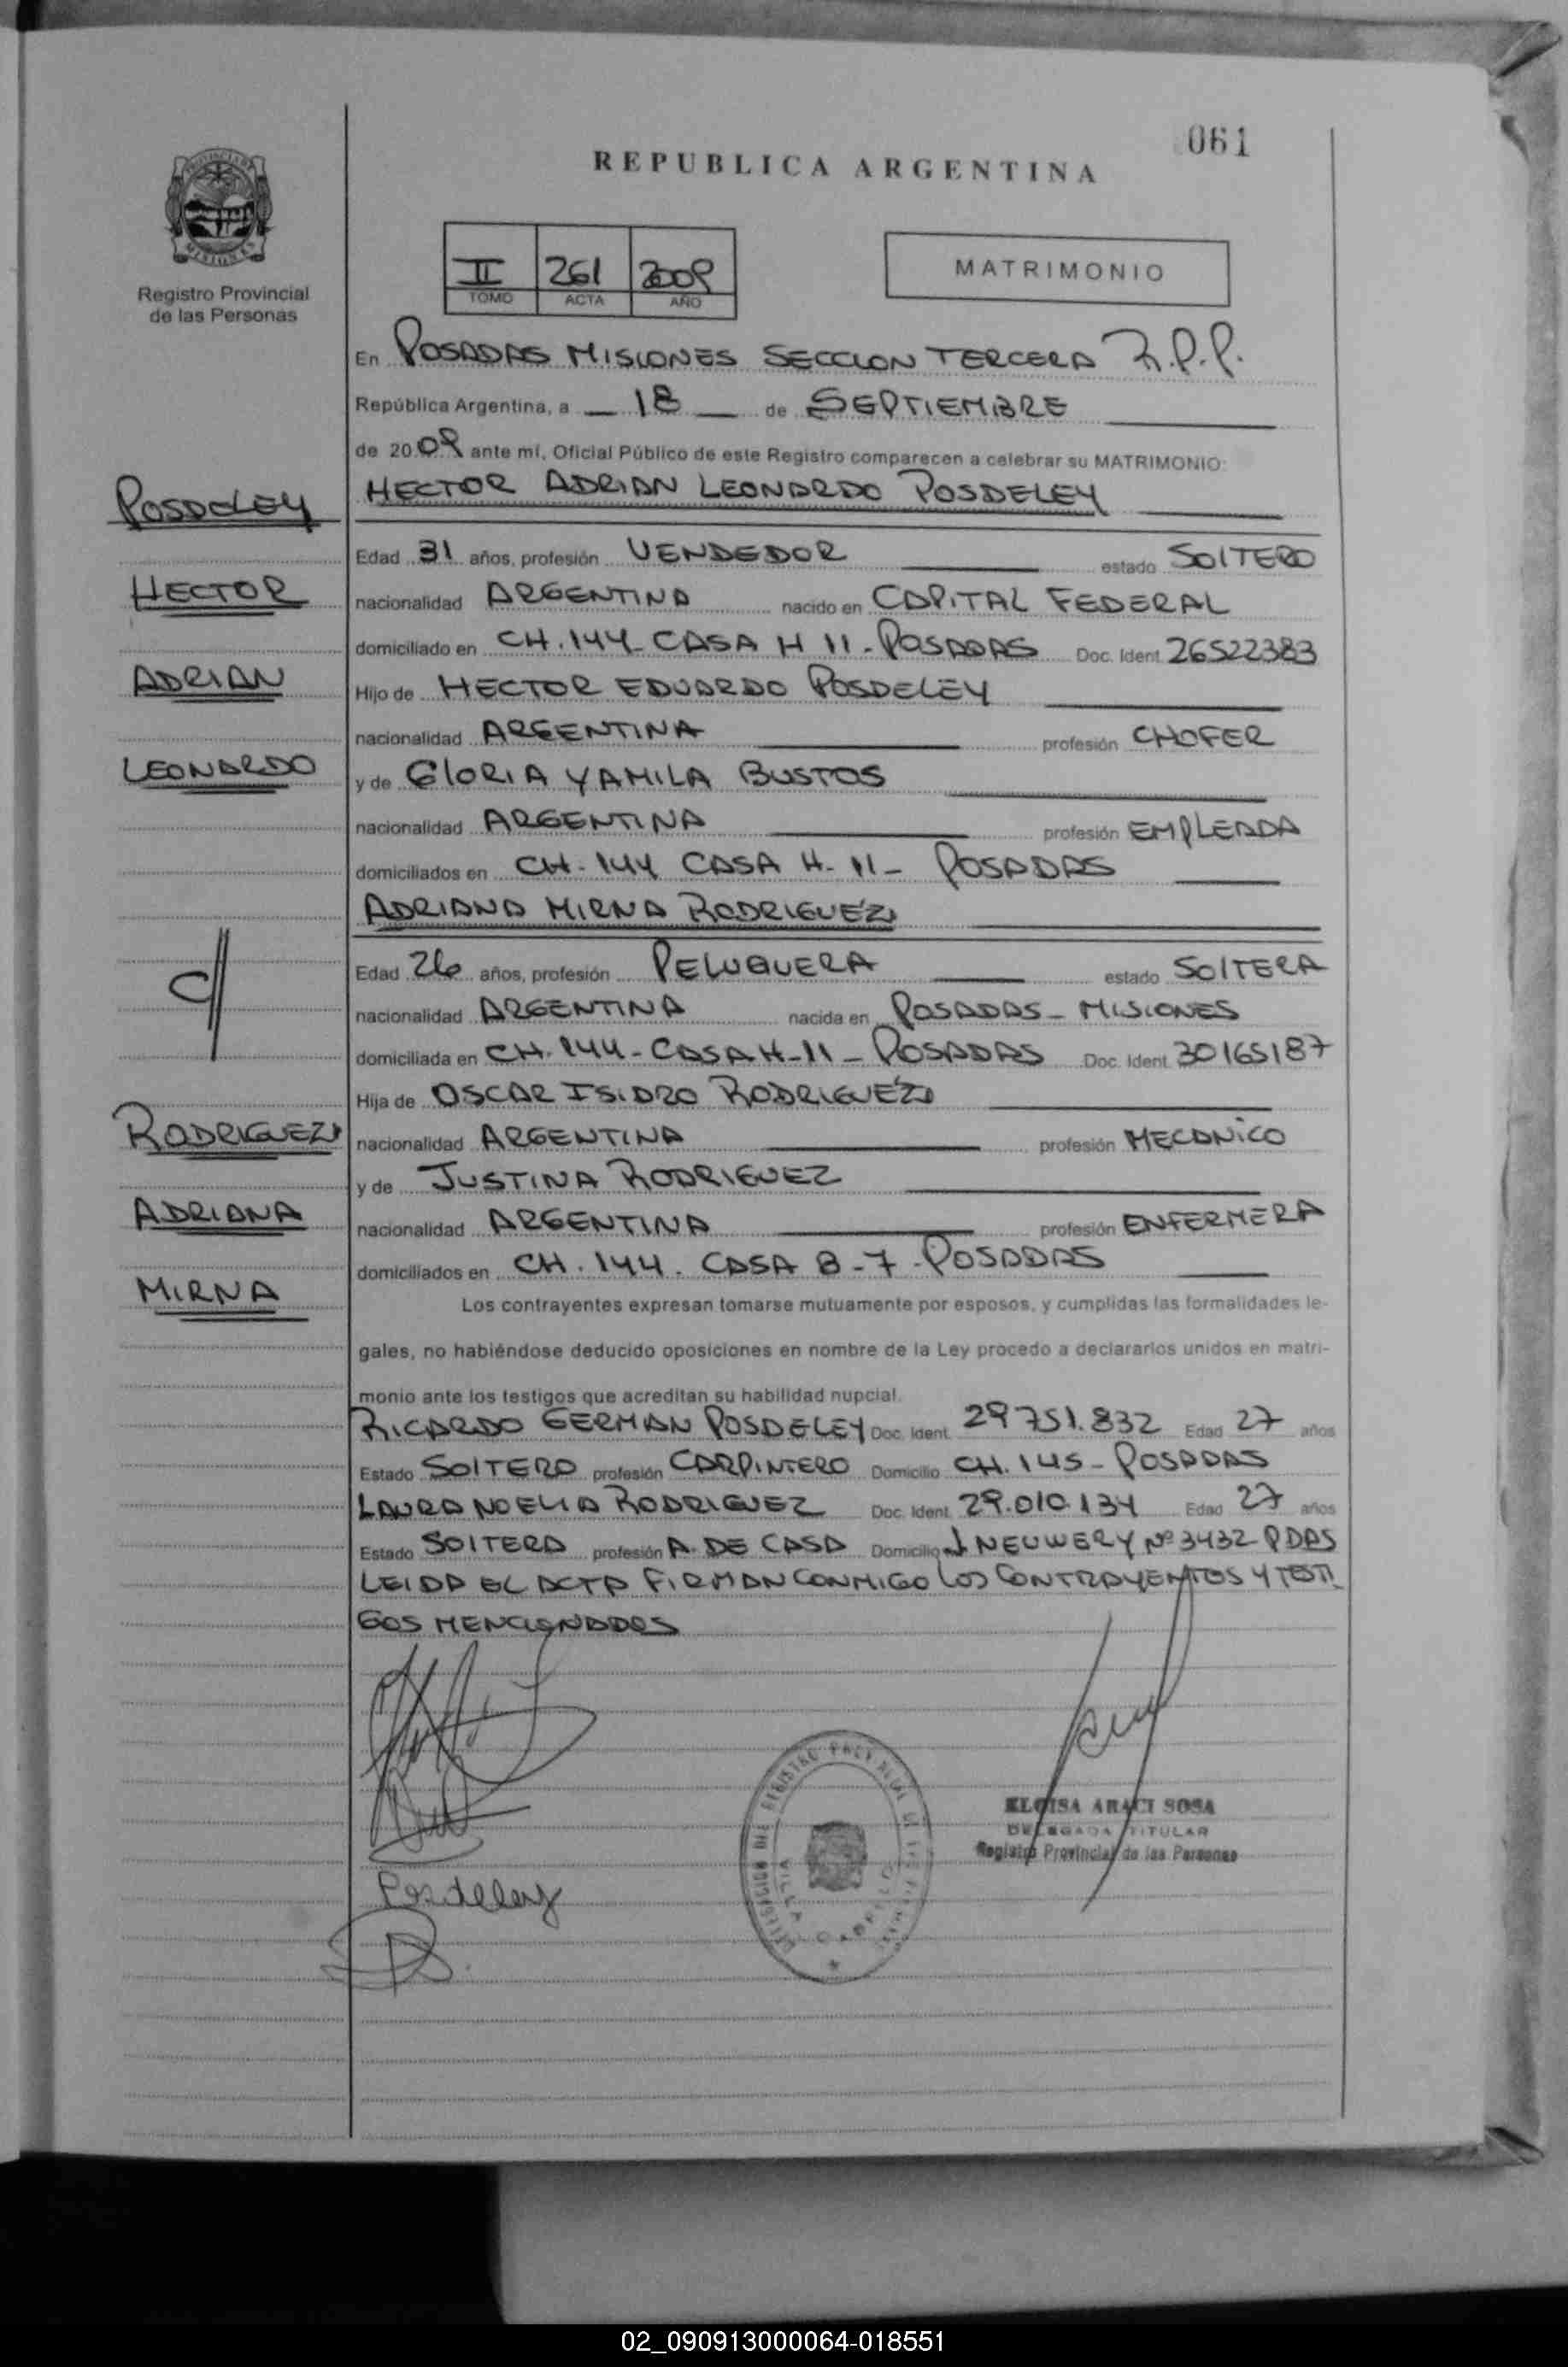 061
REPUBLICA ARGENTINA
PROVINCIA DE MISIONES
Registro Provincial
de las Personas
II 261 2009
TOMO ACTA AÑO
MATRIMONIO
En POSADAS MISIONES SECCION TERCERA R.P.P.
República Argentina, a 18 de SEPTIEMBRE
de 2009 ante mí, Oficial Público de este Registro comparecen a celebrar su MATRIMONIO:
HECTOR ADRIAN LEONARDO POSDELEY
POSDELEY
Edad 31 años, profesión VENDEDOR estado SOLTERO
HECTOR
nacionalidad ARGENTINA nacido en CAPITAL FEDERAL
domiciliado en CH.144-CASA H 11-POSADAS Doc. Ident. 26522383
ADRIAN
Hijo de HECTOR EDUARDO POSDELEY
nacionalidad ARGENTINA profesión CHOFER
LEONARDO
y de GLORIA YAMILA BUSTOS
nacionalidad ARGENTINA profesión EMPLEADA
domiciliados en CH-144 CASA H-11- POSADAS
ADRIANA MIRNA RODRIGUEZ
C/
Edad 26 años, profesión PELUQUERA estado SOLTERA
nacionalidad ARGENTINA nacida en POSADAS-MISIONES
domiciliada en CH.144-CASA H-11-POSADAS Doc. Ident. 30165187
Hija de OSCAR ISIDRO RODRIGUEZ
RODRIGUEZ
nacionalidad ARGENTINA profesión MECANICO
y de JUSTINA RODRIGUEZ
ADRIANA
nacionalidad ARGENTINA profesión ENFERMERA
domiciliados en CH.144. CASA B-7-POSADAS
MIRNA
Los contrayentes expresan tomarse mutuamente por esposos, y cumplidas las formalidades le-
gales, no habiéndose deducido oposiciones en nombre de la Ley procedo a declararlos unidos en matri-
monio ante los testigos que acreditan su habilidad nupcial.
RICARDO GERMAN POSDELEY Doc. Ident. 29751.832 Edad 27 años
Estado SOLTERO profesión CARPINTERO Domicilio CH.145-POSADAS
LAURA NOELIA RODRIGUEZ Doc. Ident. 29.010.134 Edad 27 años
Estado SOLTERA profesión A. DE CASA Domicilio J NEUWERY Nº 3432 PDAS
LEIDA EL ACTA FIRMAN CONMIGO LOS CONTRAYENTES Y TESTI
GOS MENCIONADOS
ELOISA ARACI SOSA
DELEGADA TITULAR
Registro Provincial de las Personas
Posdeley
02_090913000064-018551